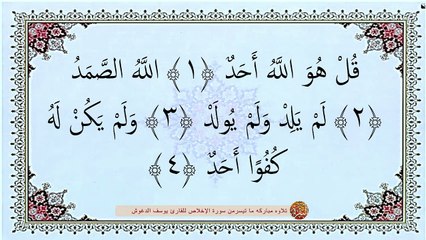 قُلْ هُوَ اللَّهُ أَحَدٌ ﴿١﴾ اللَّهُ الصَّمَدُ
﴿٢﴾ لَمْ يَلِدْ وَلَمْ يُولَدْ ﴿٣﴾ وَلَمْ يَكُنْ لَهُ
كُفُوًا أَحَدٌ ﴿٤﴾
تلاوه مباركه ما تيسرمن سورة الإخلاص للقارئ يوسف الدغوش